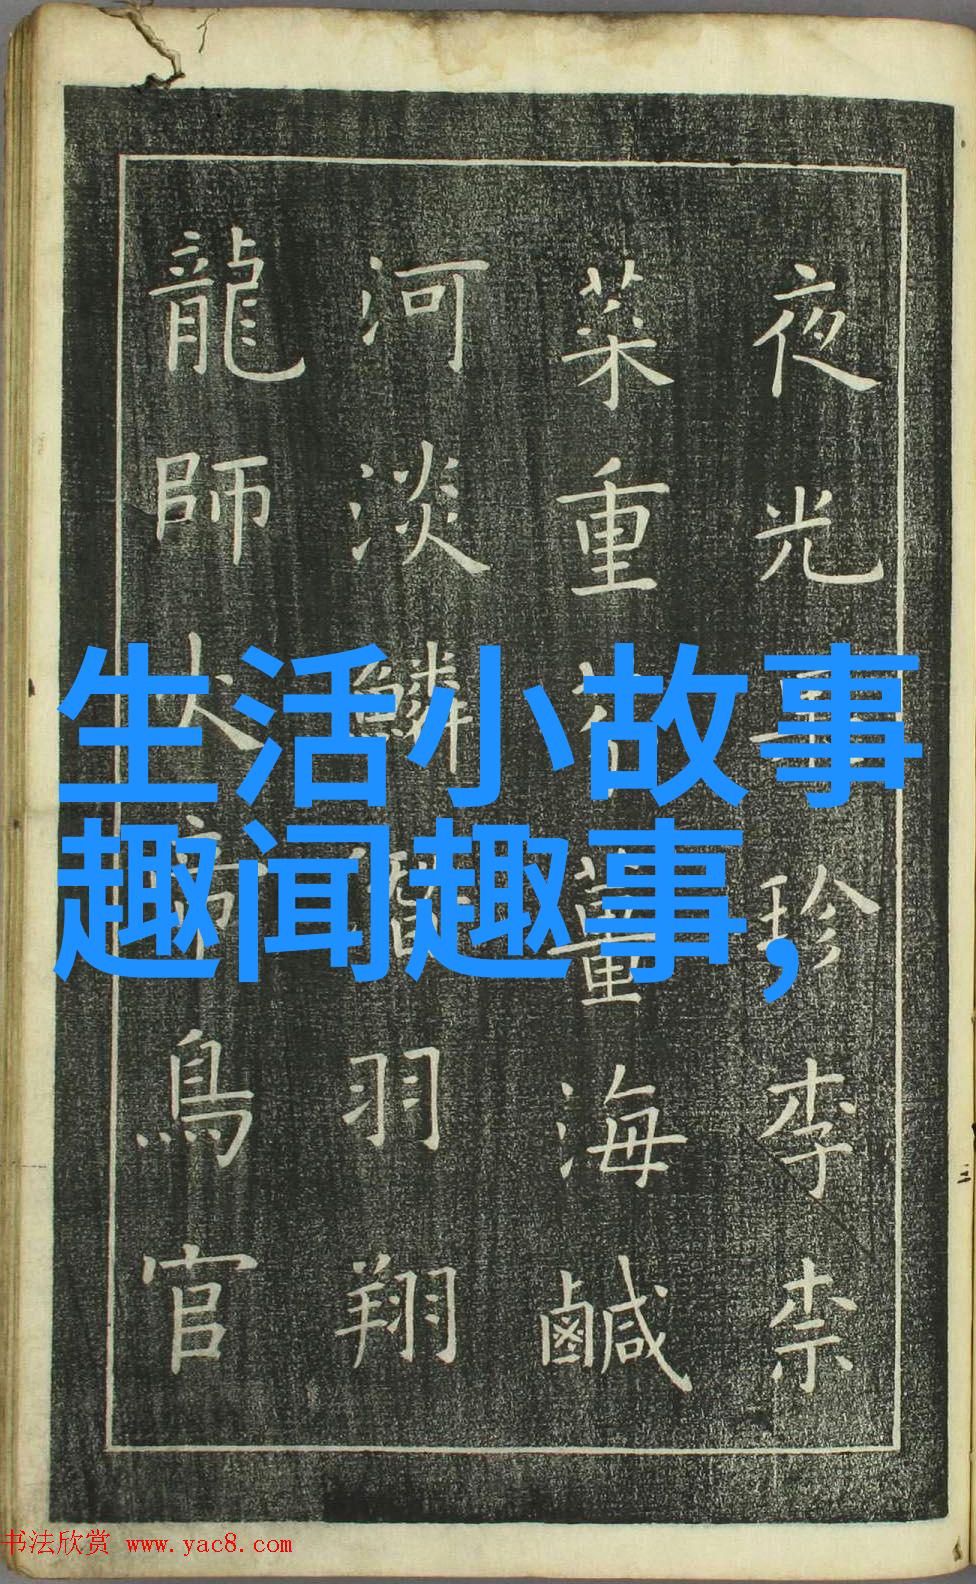 夜光珍李柰
菜重薑海鹹
河淡鱗羽翔
龍師火帝鳥官
生活小故事
趣闻趣事,
书法欣赏 www.yac8.com